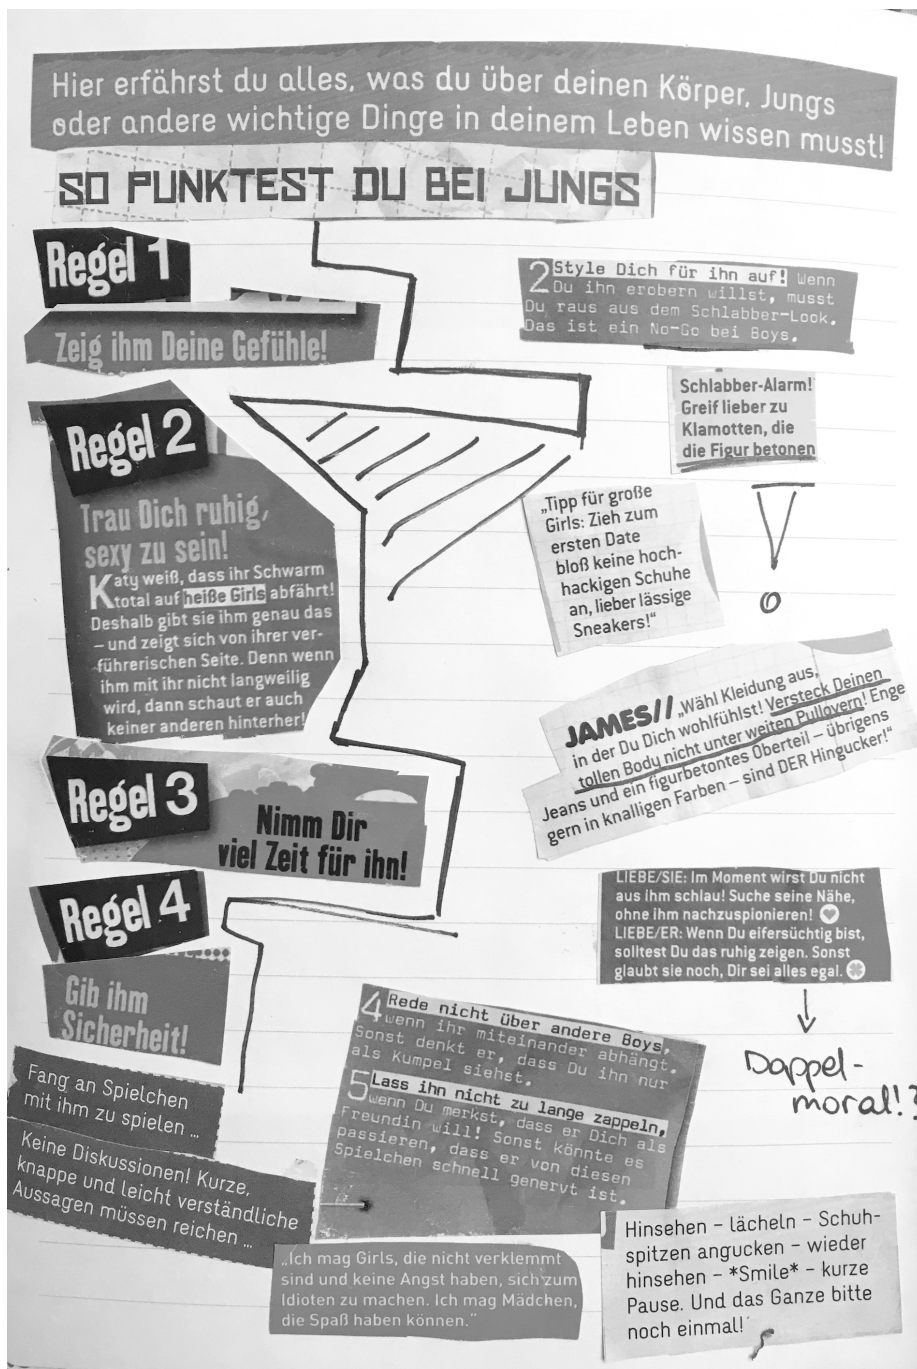 Hier erfährst du alles, was du über deinen Körper, Jungs
oder andere wichtige Dinge in deinem Leben wissen musst!
SO PUNKTEST DU BEI JUNGS
Regel 1
Zeig ihm Deine Gefühle!
2 Style Dich für ihn auf! Wenn
Du ihn erobern willst, musst
Du raus aus dem Schlabber-Look.
Das ist ein No-Go bei Boys.
Schlabber-Alarm!
Greif lieber zu
Klamotten, die
die Figur betonen
Regel 2
Trau Dich ruhig,
sexy zu sein!
Katy weiß, dass ihr Schwarm
total auf heiße Girls abfährt!
Deshalb gibt sie ihm genau das
– und zeigt sich von ihrer ver-
führerischen Seite. Denn wenn
ihm mit ihr nicht langweilig
wird, dann schaut er auch
keiner anderen hinterher!
„Tipp für große
Girls: Zieh zum
ersten Date
bloß keine hoch-
hackigen Schuhe
an, lieber lässige
Sneakers!“
!
JAMES// „Wähl Kleidung aus,
in der Du Dich wohlfühlst! Versteck Deinen
tollen Body nicht unter weiten Pullovern! Enge
Jeans und ein figurbetontes Oberteil – übrigens
gern in knalligen Farben – sind DER Hingucker!“
Regel 3
Nimm Dir
viel Zeit für ihn!
Regel 4
Gib ihm
Sicherheit!
LIEBE/SIE: Im Moment wirst Du nicht
aus ihm schlau! Suche seine Nähe,
ohne ihm nachzuspionieren!
LIEBE/ER: Wenn Du eifersüchtig bist,
solltest Du das ruhig zeigen. Sonst
glaubt sie noch, Dir sei alles egal.
Doppel-
moral!?
4 Rede nicht über andere Boys,
wenn ihr miteinander abhängt.
Sonst denkt er, dass Du ihn nur
als Kumpel siehst.
5 Lass ihn nicht zu lange zappeln,
wenn Du merkst, dass er Dich als
Freundin will! Sonst könnte es
passieren, dass er von diesen
Spielchen schnell genervt ist.
Fang an Spielchen
mit ihm zu spielen ...
Keine Diskussionen! Kurze,
knappe und leicht verständliche
Aussagen müssen reichen ...
„Ich mag Girls, die nicht verklemmt
sind und keine Angst haben, sich zum
Idioten zu machen. Ich mag Mädchen,
die Spaß haben können.“
Hinsehen – lächeln – Schuh-
spitzen angucken – wieder
hinsehen – *Smile* – kurze
Pause. Und das Ganze bitte
noch einmal!